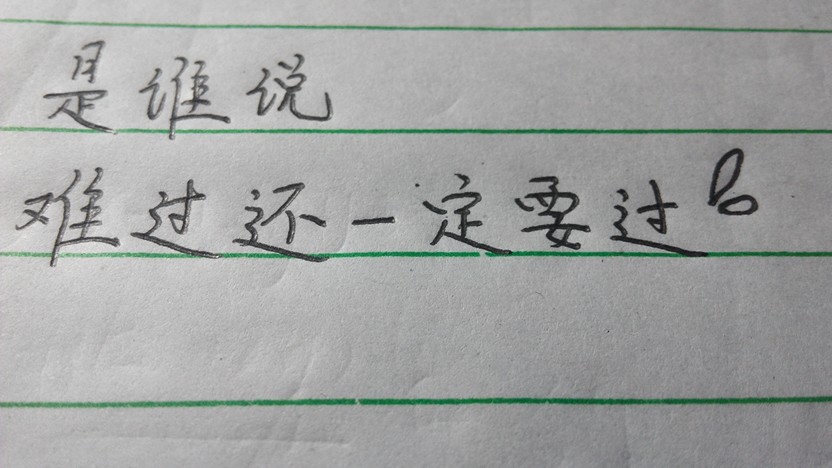 是谁说
难过还一定要过!